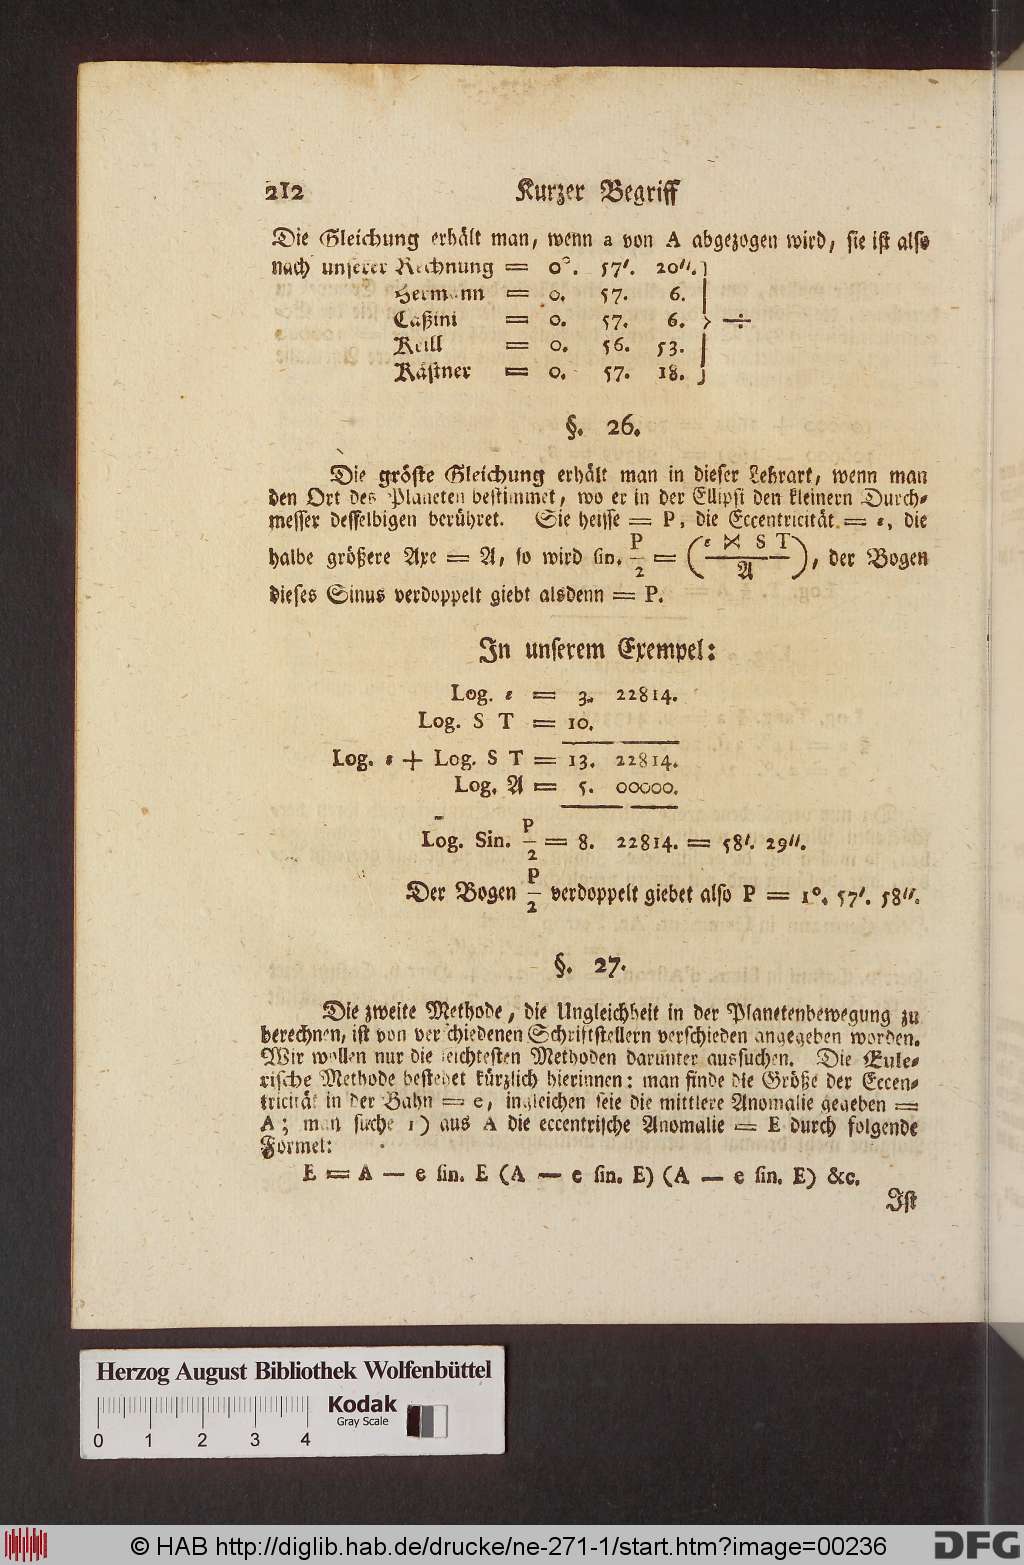 212 Kurzer Begriff
Die Gleichung erhält man, wenn a von A abgezogen wird, sie ist also
nach unserer Rechnung = 0°. 57′. 20″. }
Hermann = 0. 57. 6.
Caßini = 0. 57. 6. } ÷
Keill = 0. 56. 53.
Kästner = 0. 57. 18. }
§. 26.
Die gröste Gleichung erhält man in dieser Lehrart, wenn man
den Ort des Planeten bestimmet, wo er in der Ellipsi den kleinern Durch-
messer desselbigen berühret. Sie heisse = P, die Eccentricität = e, die
halbe größere Axe = A, so wird sin. P/2 = (e ⋊ S T / A), der Bogen
dieses Sinus verdoppelt giebt alsdenn = P.
In unserem Exempel:
Log. e = 3. 22814.
Log. S T = 10.
Log. e + Log. S T = 13. 22814.
Log. A = 5. 00000.
Log. Sin. P/2 = 8. 22814. = 58′. 29″.
Der Bogen P/2 verdoppelt giebet also P = 1°. 57′. 58″.
§. 27.
Die zweite Methode, die Ungleichheit in der Planetenbewegung zu
berechnen, ist von verschiedenen Schriftstellern verschieden angegeben worden.
Wir wollen nur die leichtesten Methoden darunter aussuchen. Die Eule-
rische Methode bestehet kürzlich hierinnen: man finde die Größe der Eccen-
tricität in der Bahn = e, ingleichen seie die mittlere Anomalie gegeben =
A; man suche 1) aus A die eccentrische Anomalie = E durch folgende
Formel:
E = A — e sin. E (A — e sin. E) (A — e sin. E) &c.
Ist
Herzog August Bibliothek Wolfenbüttel
Kodak
Gray Scale
0 1 2 3 4
© HAB http://diglib.hab.de/drucke/ne-271-1/start.htm?image=00236
DFG